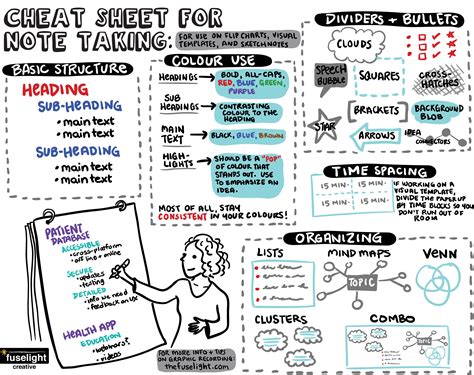 CHEAT SHEET FOR
NOTE TAKING.
FOR USE ON FLIP CHARTS, VISUAL
TEMPLATES, AND SKETCHNOTES
BASIC STRUCTURE
HEADING
SUB-HEADING
• main text
• main text
SUB-HEADING
• main text
COLOUR USE
HEADINGS
BOLD, ALL-CAPS,
RED, BLUE, GREEN,
PURPLE
SUB
HEADINGS
CONTRASTING
COLOUR TO THE
HEADING
MAIN
TEXT
BLACK, BLUE, BROWN
HIGH-
LIGHTS
SHOULD BE A "POP"
OF COLOUR THAT
STANDS OUT. USE
TO EMPHASIZE AN
IDEA.
MOST OF ALL, STAY
CONSISTENT IN YOUR COLOURS!
DIVIDERS + BULLETS
CLOUDS
SPEECH
BUBBLE
SQUARES
CROSS-
HATCHES
STAR
BRACKETS
BACKGROUND
BLOB
ARROWS
IDEA
CONNECTORS
TIME SPACING
15 MIN.
15 MIN.
15 MIN.
15 MIN.
IF WORKING ON A
VISUAL TEMPLATE,
DIVIDE THE PAPER UP
BY TIME BLOCKS SO YOU
DON'T RUN OUT OF
ROOM
ORGANIZING
LISTS
MIND MAPS
VENN
TOPIC
CLUSTERS
COMBO
TOPIC
PATIENT
DATABASE
ACCESSIBLE
• cross-platform
• off line + online
SECURE
• updates
• testing
DETAILED
• info we need
• feedback on UX
HEALTH APP
EDUCATION
• webinars?
• videos
FOR MORE INFO + TIPS
ON GRAPHIC RECORDING
thefuselight.com
fuselight
creative